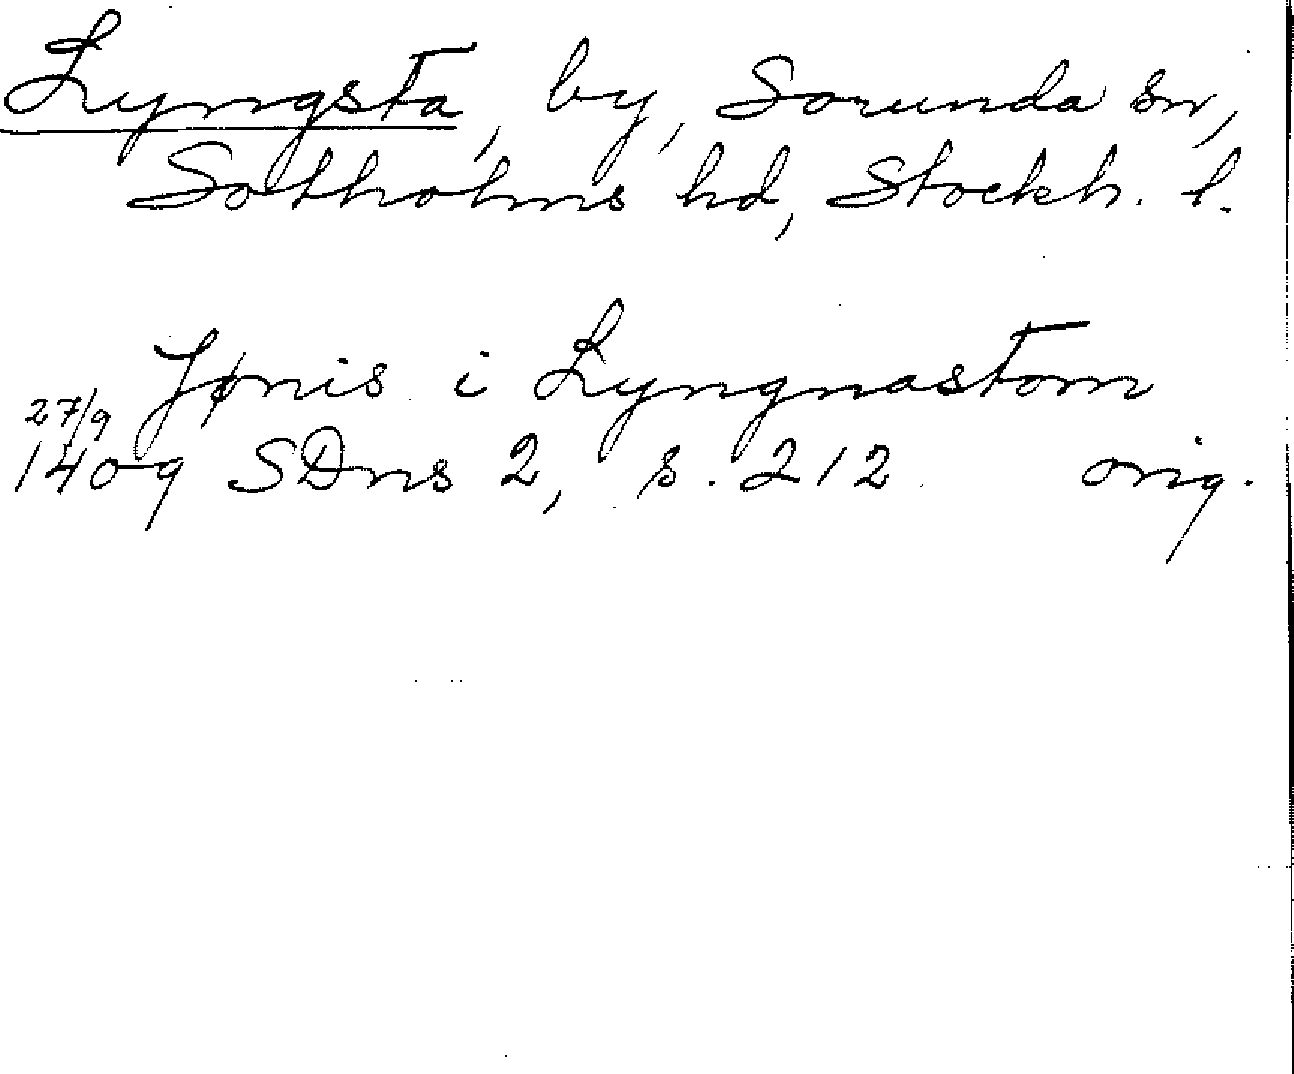 Lyngsta, by, Sorunda sn,
Sotholms hd, Stockh. l.
Jønis i Lyngnastom
27/9
1409 SDns 2, s. 212 orig.